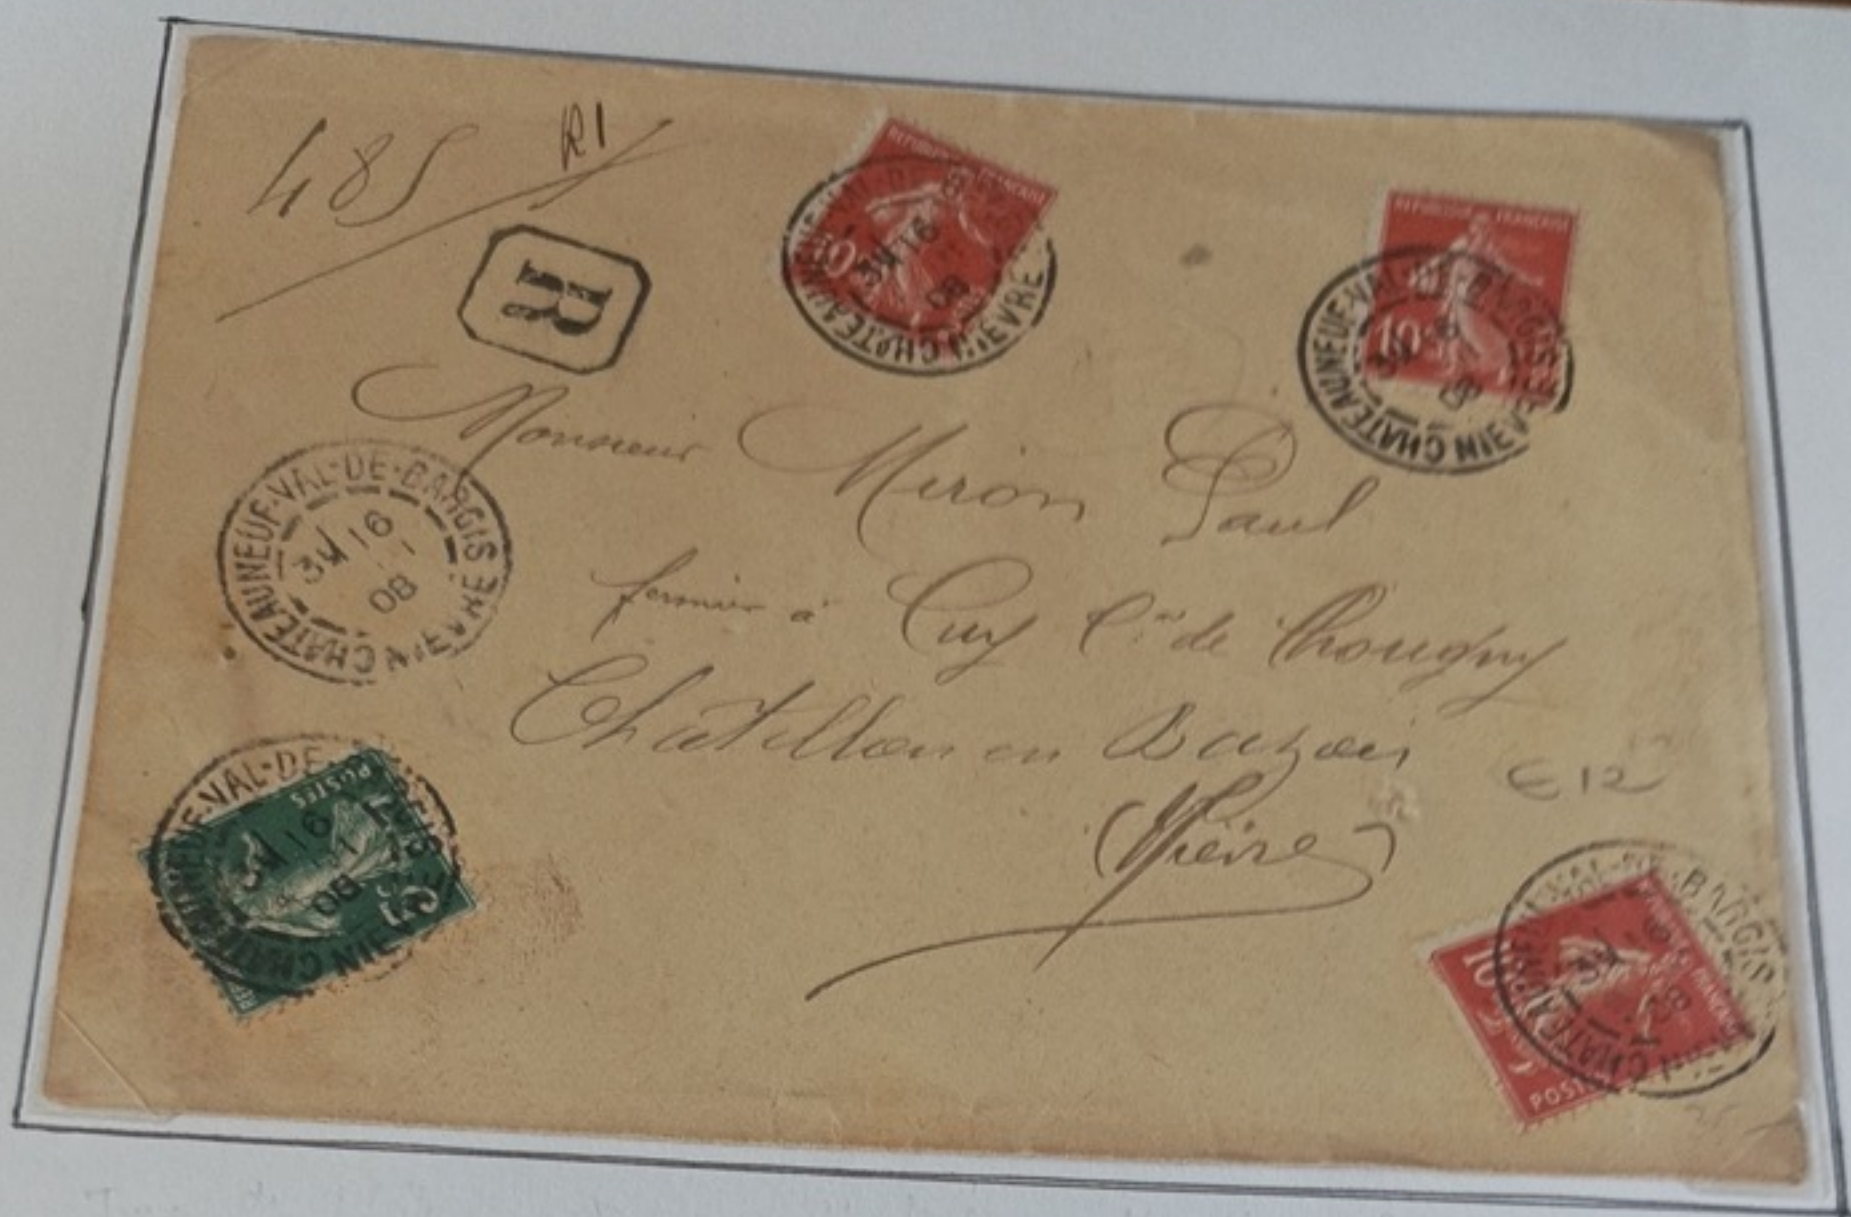 485 R1
R
REPUBLIQUE FRANÇAISE
10
CHATEAUNEUF-VAL-DE-BARGIS NIEVRE
3M 16
08
REPUBLIQUE FRANÇAISE
10
CHATEAUNEUF-VAL-DE-BARGIS NIEVRE
3M 16
08
Monsieur Miron Paul
CHATEAUNEUF-VAL-DE-BARGIS NIEVRE
3M 16
-1
08
fermier à Cuy Cne de Chougny
Châtillon en Bazois
(Nièvre)
€12
POSTES
5
CHATEAUNEUF-VAL-DE-BARGIS NIEVRE
3M 16
-1
08
10
POSTES
CHATEAUNEUF-VAL-DE-BARGIS
3M 16
08